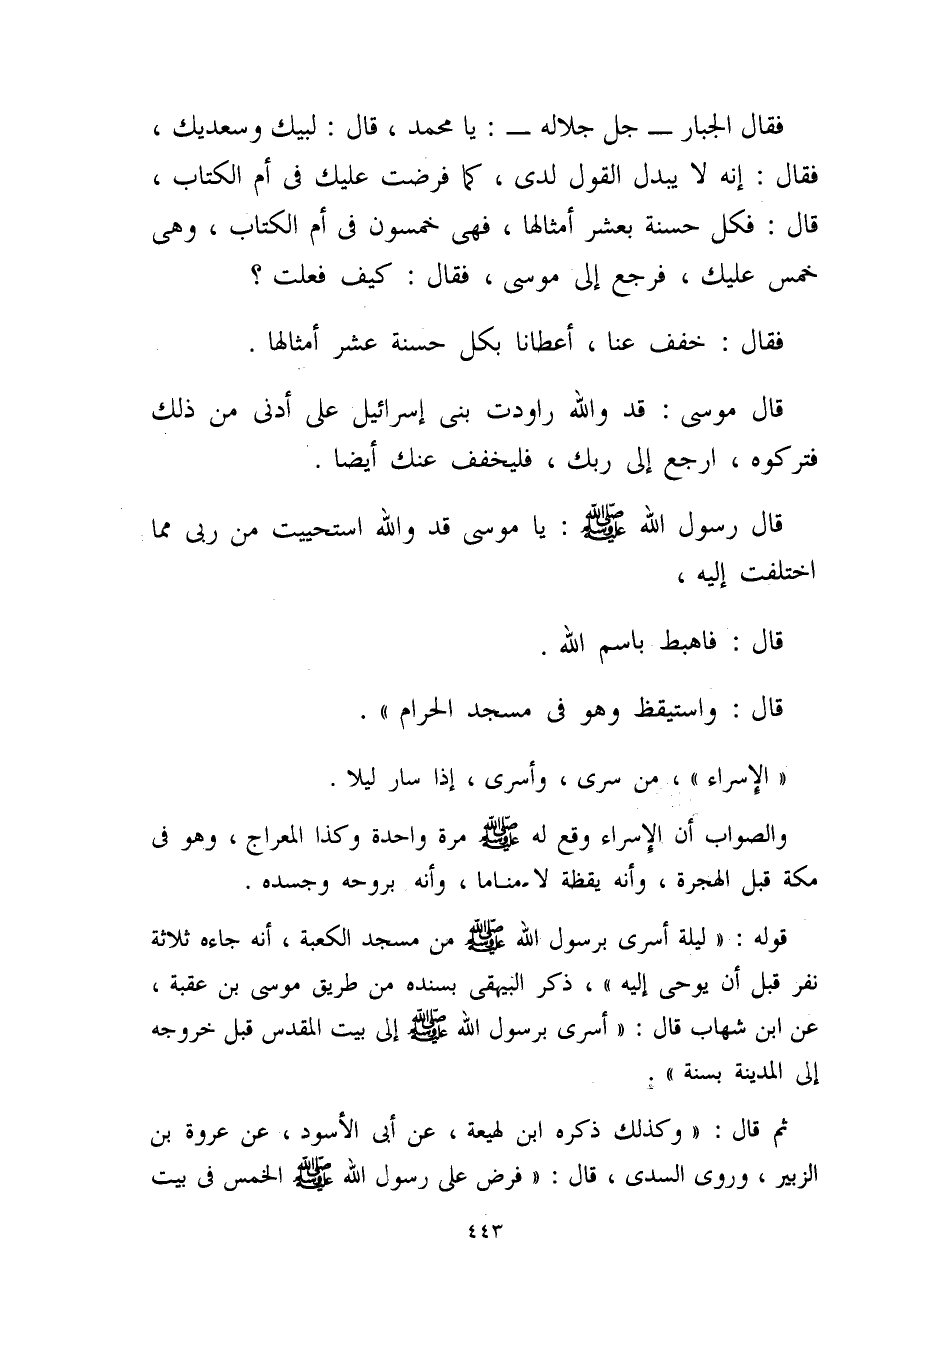 فقال الجبار ــ جل جلاله ــ : يا محمد ، قال : لبيك وسعديك ،
فقال : إنه لا يبدل القول لدى ، كما فرضت عليك فى أم الكتاب ،
قال : فكل حسنة بعشر أمثالها ، فهى خمسون فى أم الكتاب ، وهى
خمس عليك ، فرجع إلى موسى ، فقال : كيف فعلت ؟
فقال : خفف عنا ، أعطانا بكل حسنة عشر أمثالها .
قال موسى : قد والله راودت بنى إسرائيل على أدنى من ذلك
فتركوه ، ارجع إلى ربك ، فليخفف عنك أيضا .
قال رسول الله ﷺ : يا موسى قد والله استحييت من ربى مما
اختلفت إليه ،
قال : فاهبط باسم الله .
قال : واستيقظ وهو فى مسجد الحرام » .
« الإسراء » ، من سرى ، وأسرى ، إذا سار ليلا .
والصواب أن الإسراء وقع له ﷺ مرة واحدة وكذا المعراج ، وهو فى
مكة قبل الهجرة ، وأنه يقظة لا مناما ، وأنه بروحه وجسده .
قوله : « ليلة أسرى برسول الله ﷺ من مسجد الكعبة ، أنه جاءه ثلاثة
نفر قبل أن يوحى إليه » ، ذكر البيهقى بسنده من طريق موسى بن عقبة ،
عن ابن شهاب قال : « أسرى برسول الله ﷺ إلى بيت المقدس قبل خروجه
إلى المدينة بسنة » .
ثم قال : « وكذلك ذكره ابن لهيعة ، عن أبى الأسود ، عن عروة بن
الزبير ، وروى السدى ، قال : « فرض على رسول الله ﷺ الخمس فى بيت
٤٤٣